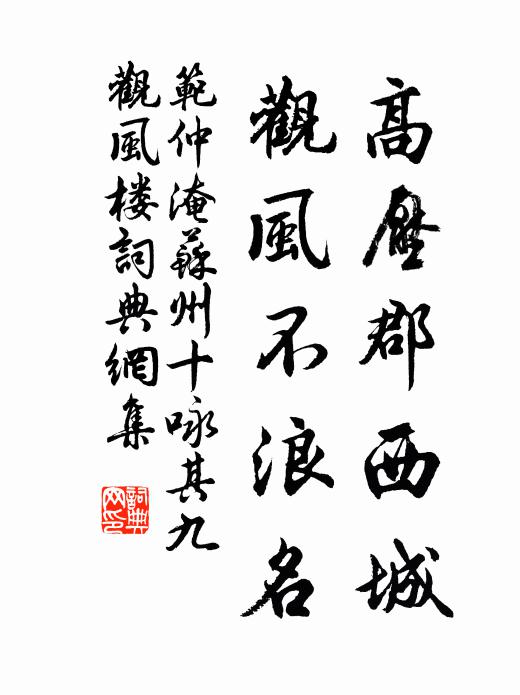 高壓郡西城
觀風不浪名
範仲淹蘇州十咏其九
觀風楼詞典網集
詞典网印